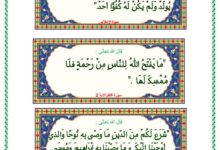 يُولَدْ وَلَمْ يَكُنْ لَهُ كُفُوًا أَحَدٌ"
قال الله تعالى:
"مَا يَفْتَحِ اللَّهُ لِلنَّاسِ مِنْ رَحْمَةٍ فَلَا
مُمْسِكَ لَهَا "
قال الله تعالى:
شَرَعَ لَكُم مِنَ الدِّينِ مَا وَصَّى بِهِ نُوحًا وَالَّذِي
أَوْحَيْنَا إِلَيْكَ وَمَا وَصَّيْنَا بِهِ إِبْرَاهِيمَ وَمُوسَى